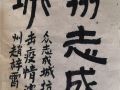 众志成
城
众志成城抗
击疫情沧
州赵梓雷